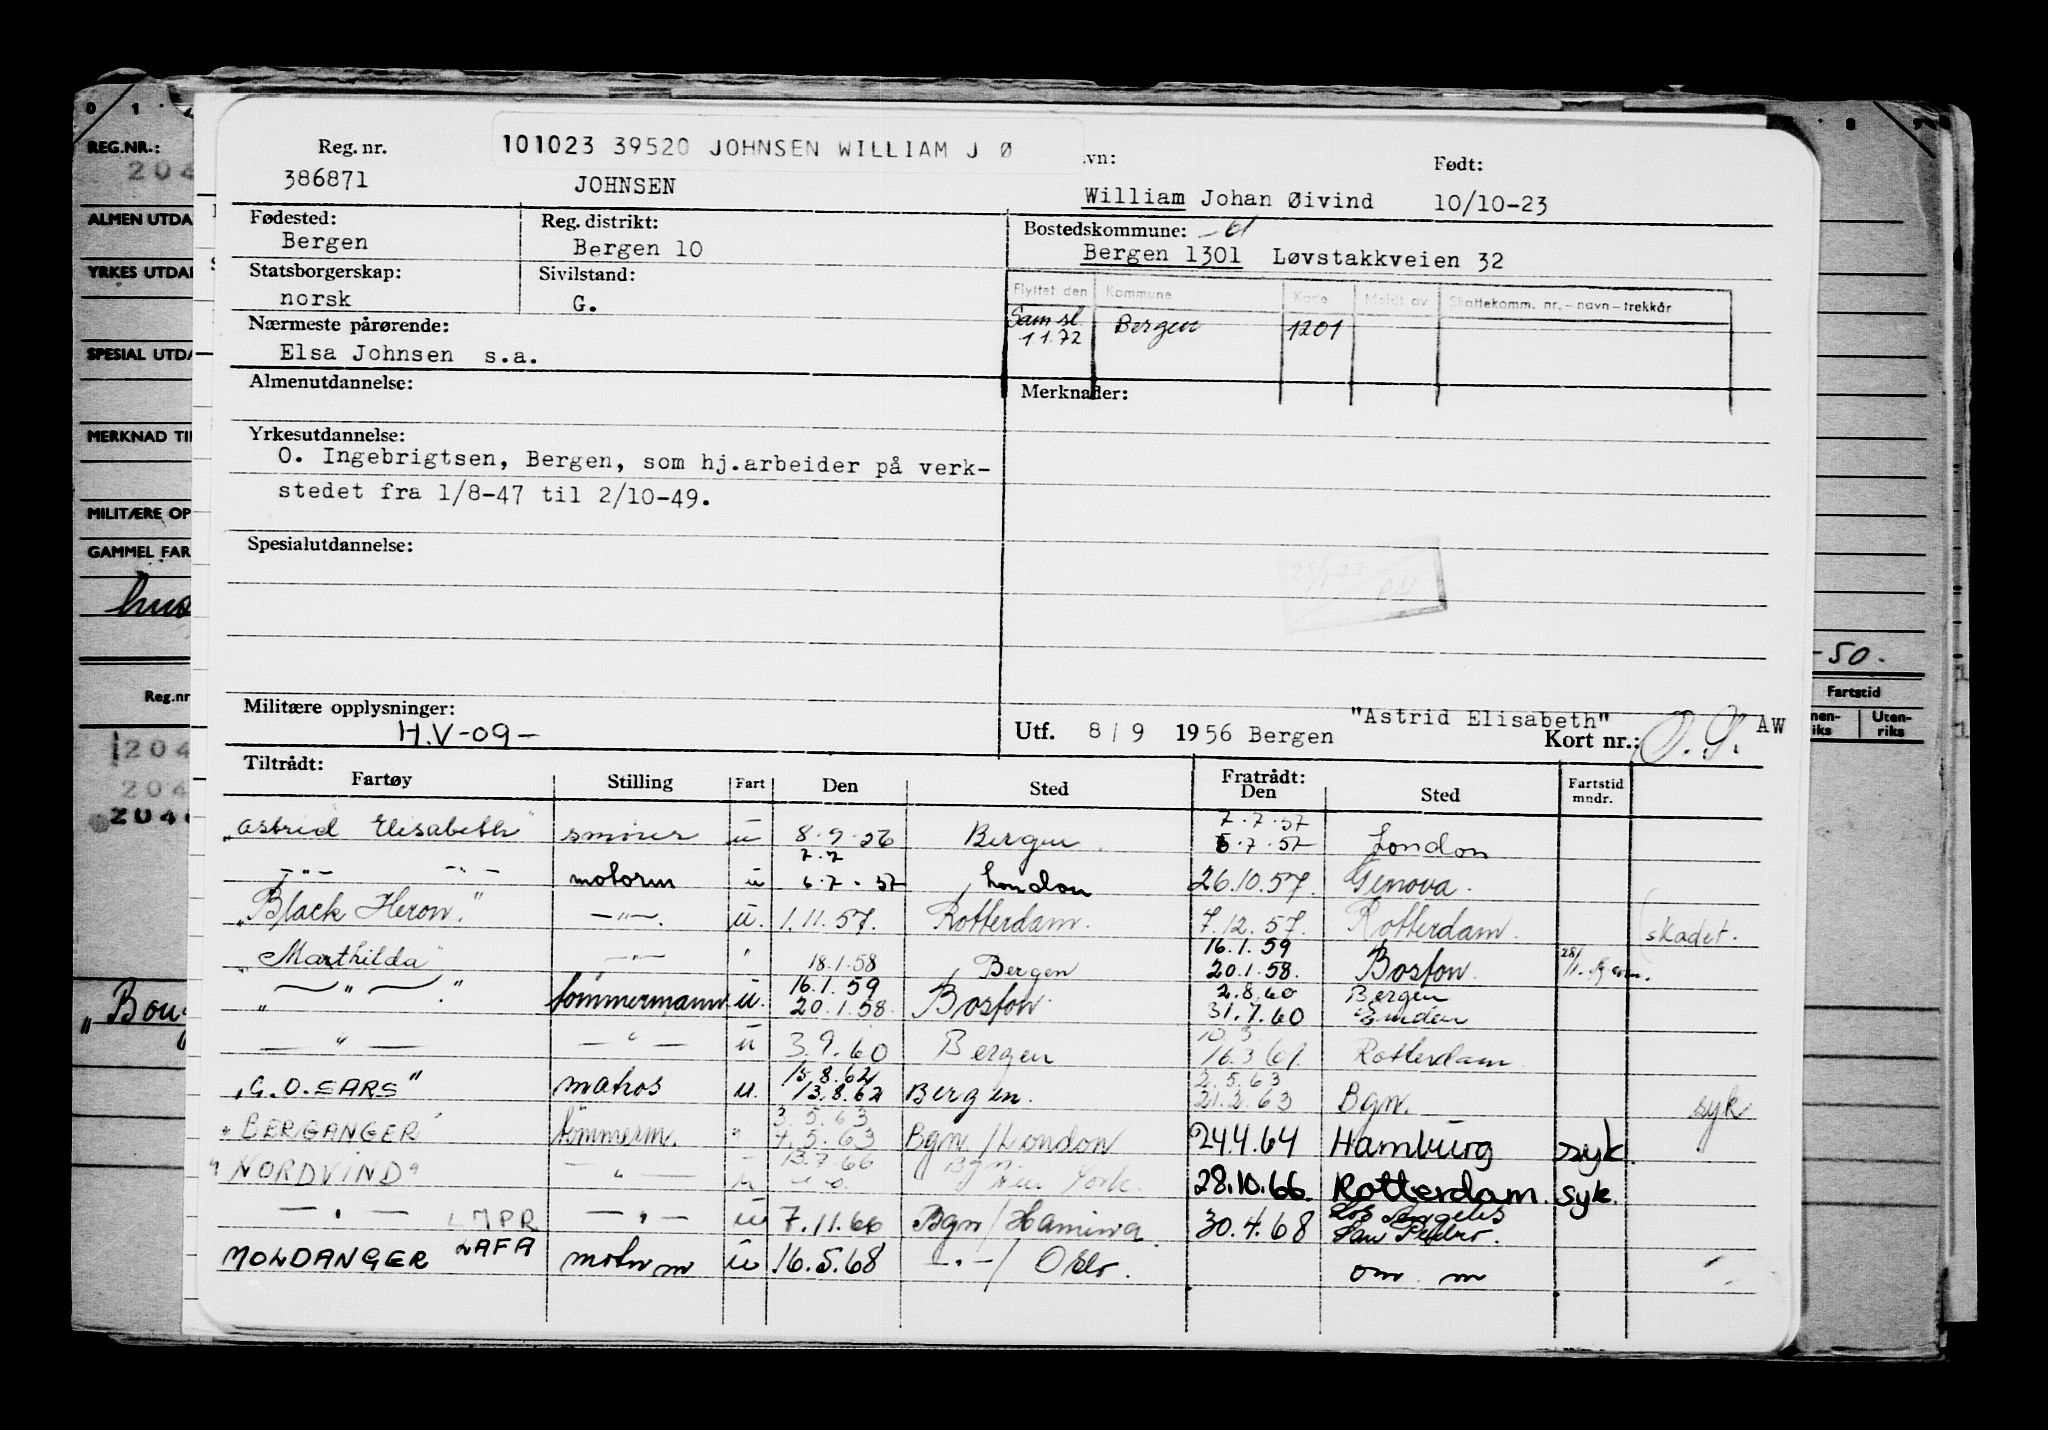 0 1
REG.NR.:
204
ALMEN UTDA
YRKES UTDA
SPECIAL UTDA
MERKNAD TI
MILITÆRE OP
GAMMEL FAR
hus
-50.
Reg.nr
Fartstid
nen-
riks
Uten-
riks
204
204
204
"Boug
101023 39520 JOHNSEN WILLIAM J Ø
Reg. nr.
vn:
Født:
386871
JOHNSEN
William Johan Øivind
10/10-23
Fødested:
Reg. distrikt:
Bostedskommune:
Bergen
Bergen 10
Bergen 1301 Løvstakkveien 32
Statsborgerskap:
Sivilstand:
norsk
G.
Flyttet den
Kommune
Kode
Meldt av
Skattekomm. nr.-navn-trekkår
Sam sl.
1 1.72
Bergen
1201
Nærmeste pårørende:
Elsa Johnsen s.a.
Almenutdannelse:
Merknader:
Yrkesutdannelse:
O. Ingebrigtsen, Bergen, som hj.arbeider på verk-
stedet fra 1/8-47 til 2/10-49.
Spesialutdannelse:
Militære opplysninger:
H.V-09-
Utf. 8/9 1956 Bergen
"Astrid Elisabeth"
Kort nr.:
AW
Tiltrådt:
Fratrådt:
Fartøy Stilling Fart Den Sted Den Sted Fartstid mndr.
7.7.57
"Astrid Elisabeth" smører u 8.9.56 Bergen 6.7.57 London
7.7
-"- -"- motorm u 6.7.57 London 26.10.57. Genova.
"Black Heron." -"-. u. 1.11.57. Rotterdam. 7.12.57. Rotterdam. skadet.
16.1.59
"Marthilda" -"- " 18.1.58 Bergen 20.1.58. Boston.
16.1.59 2.8.60 Bergen
" -"- ." tømmermann u. 20.1.58. Boston. 31.7.60 Emden
10.3.
-"- -"- u 3.9.60 Bergen 16.3.61. Rotterdam.
15.8.62 2.5.63
"G.O.SARS" matros u. 13.8.62 Bergen. 21.2.63 Bgn. syk
3.5.63
"BERGANGER" tømmerm. " 4.5.63 Bgn/London 24.4.64 Hamburg syk.
13.7.66
"NORDVIND" -"- u Bgn/New York. 28.10.66. Rotterdam. syk.
Los Angeles
-"- LMPR -"- u 7.11.66 Bgn/Hamina. 30.4.68 San Pedro.
MOLDANGER LAFA motorm u 16.5.68 -"-/ Oslo. om. m